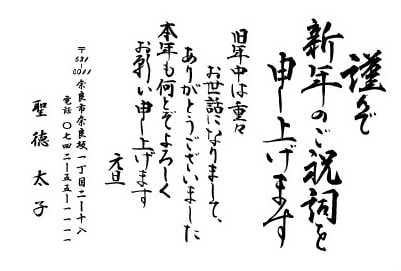 謹んで
新年のご祝詞を
申し上げます
旧年中は重々
お世話になりまして、
ありがとうございました
本年も何とぞよろしく
お願い申し上げます
元旦
〒631-0011
奈良市奈良坂一丁目二ー十八
電話〇七四二ー五五ー一一一一
聖徳太子